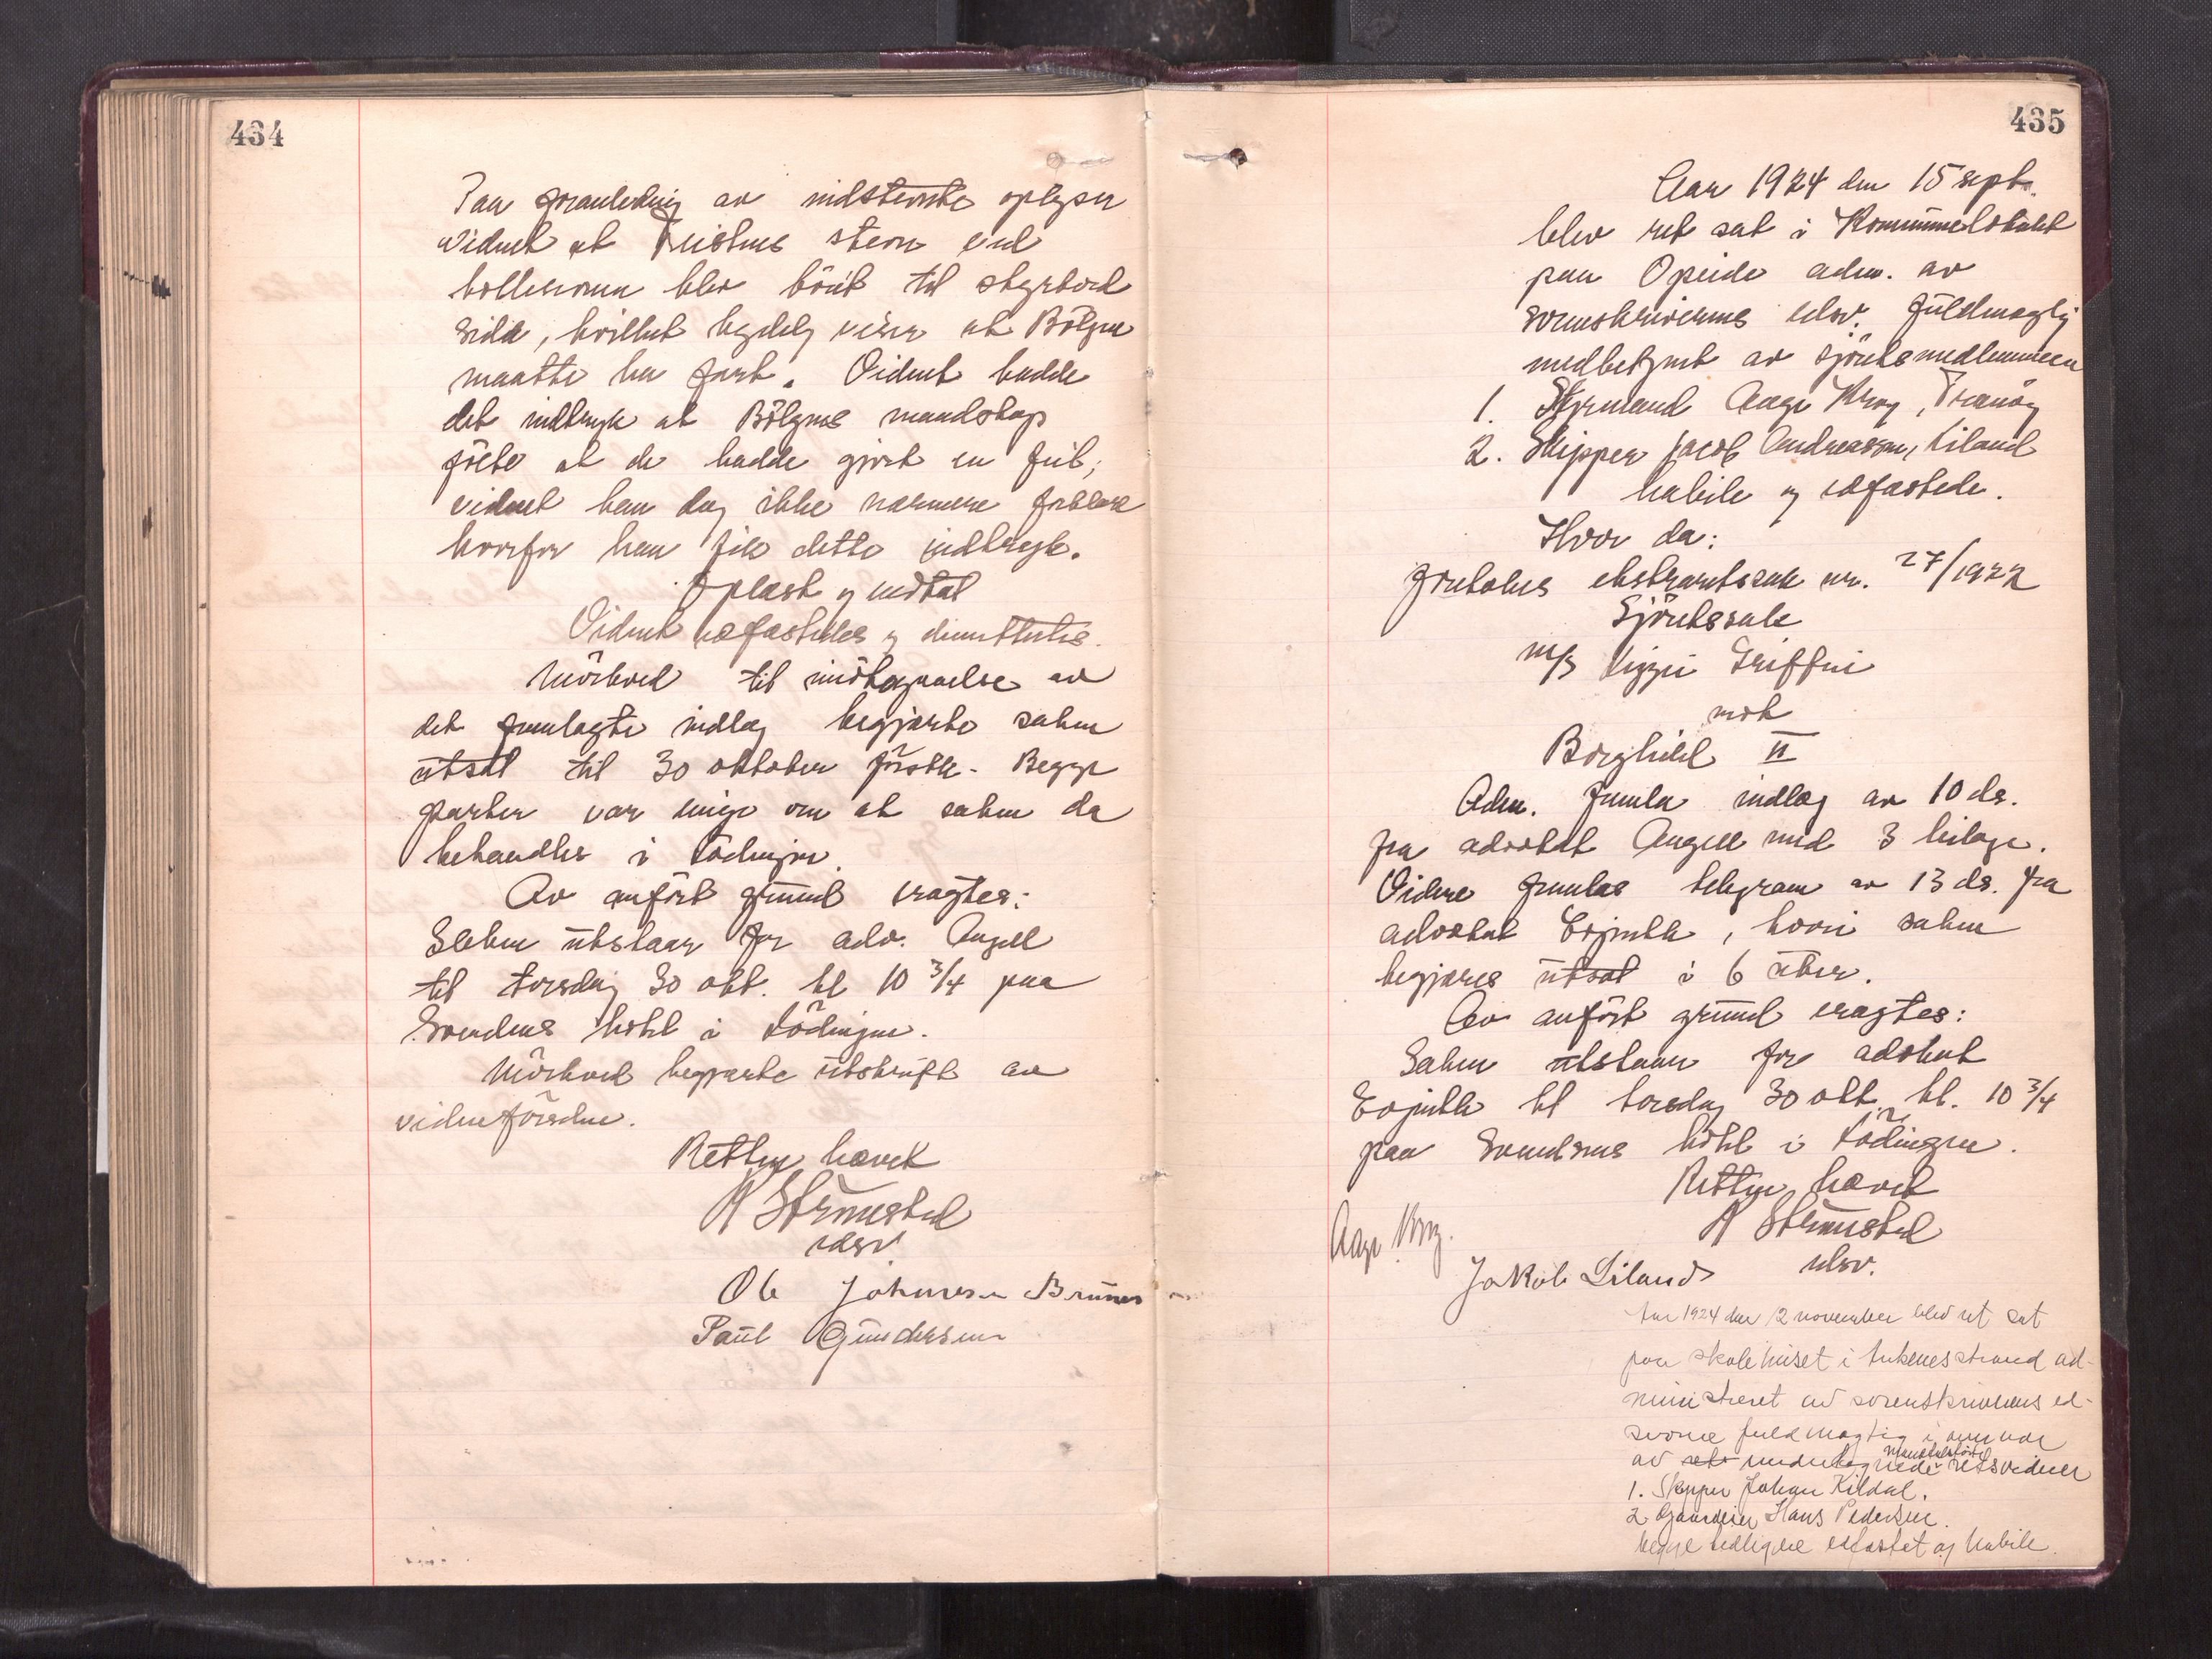 434
Paa foranledning av indstevnte oplyser
vidnet at Teistens stevn ved
kollisionen blev böiet til styrbord
side, hvilket tydelig viser at Bölgen
maatte ha fart. Vidnet hadde
det indtryk at Bölgens mandskap
fölte at de hadde gjort en feil;
vidnet kan dog ikke nærmere forklare
hvorfor han fik dette indtryk.
Oplæst og vedtat
Vidnet edfæstedes og dimitteredes.
Mörkved til imötegaaelse av
det fremlagte indlæg begjærte saken
utsat til 30 oktober förstk. Begge
parter var enige om at saken da
behandles i Lödingen.
Av anfört grund eragtes:
Saken utstaar for adv. Angell
til torsdag 30 okt. kl 10 3/4 paa
Svendsens hotel i Lödingen.
Mörkved begjærte utskrift av
vidneförselen.
Retten hævet
A Strömsted
edsv.
Ole Johnsen
Paul Gundersen
435
Aar 1924 den 15 sept.
blev ret sat i Kommunelokalet
paa Opeide adm. av
sorenskriverens edsv. fuldmægtig
medbetjent av sjöretsmedlemmene
1. Styrmand Aage Krog, Tranöy
2. Skipper Jacob Andreassen, Liland
habile og edfæstede.
Hvor da:
Foretokes ekstraretssak nr. 27/1922
Sjöretssak
m/s Lizzie Griffin
mot
Borghild II
Adm. fremla indlæg av 10 ds.
fra advokat Angell med 3 bilage.
Videre fremlaes telegram av 13 ds. fra
advokat , hvori saken
begjæres utsat i 6 uker.
Av anfört grund eragtes:
Saken utstaar for advokat
til torsdag 30 okt. kl. 10 3/4
paa Svendsens hotel i Lödingen.
Retten hævet
A Strömsted
edsv.
Aage Krog.
Jakob Liland
Aar 1924 den 12 november blev ret sat
paa skolehuset i strand ad-
ministreret av sorenskriverens ed-
svorne fuldmægtig i nærvær
av rets undertegnede mandtalsförte retsvidner
1. Skipper Johan Kildal.
2 Gaardeier Hans Pedersen.
begge tidligere edfæstet og habile.